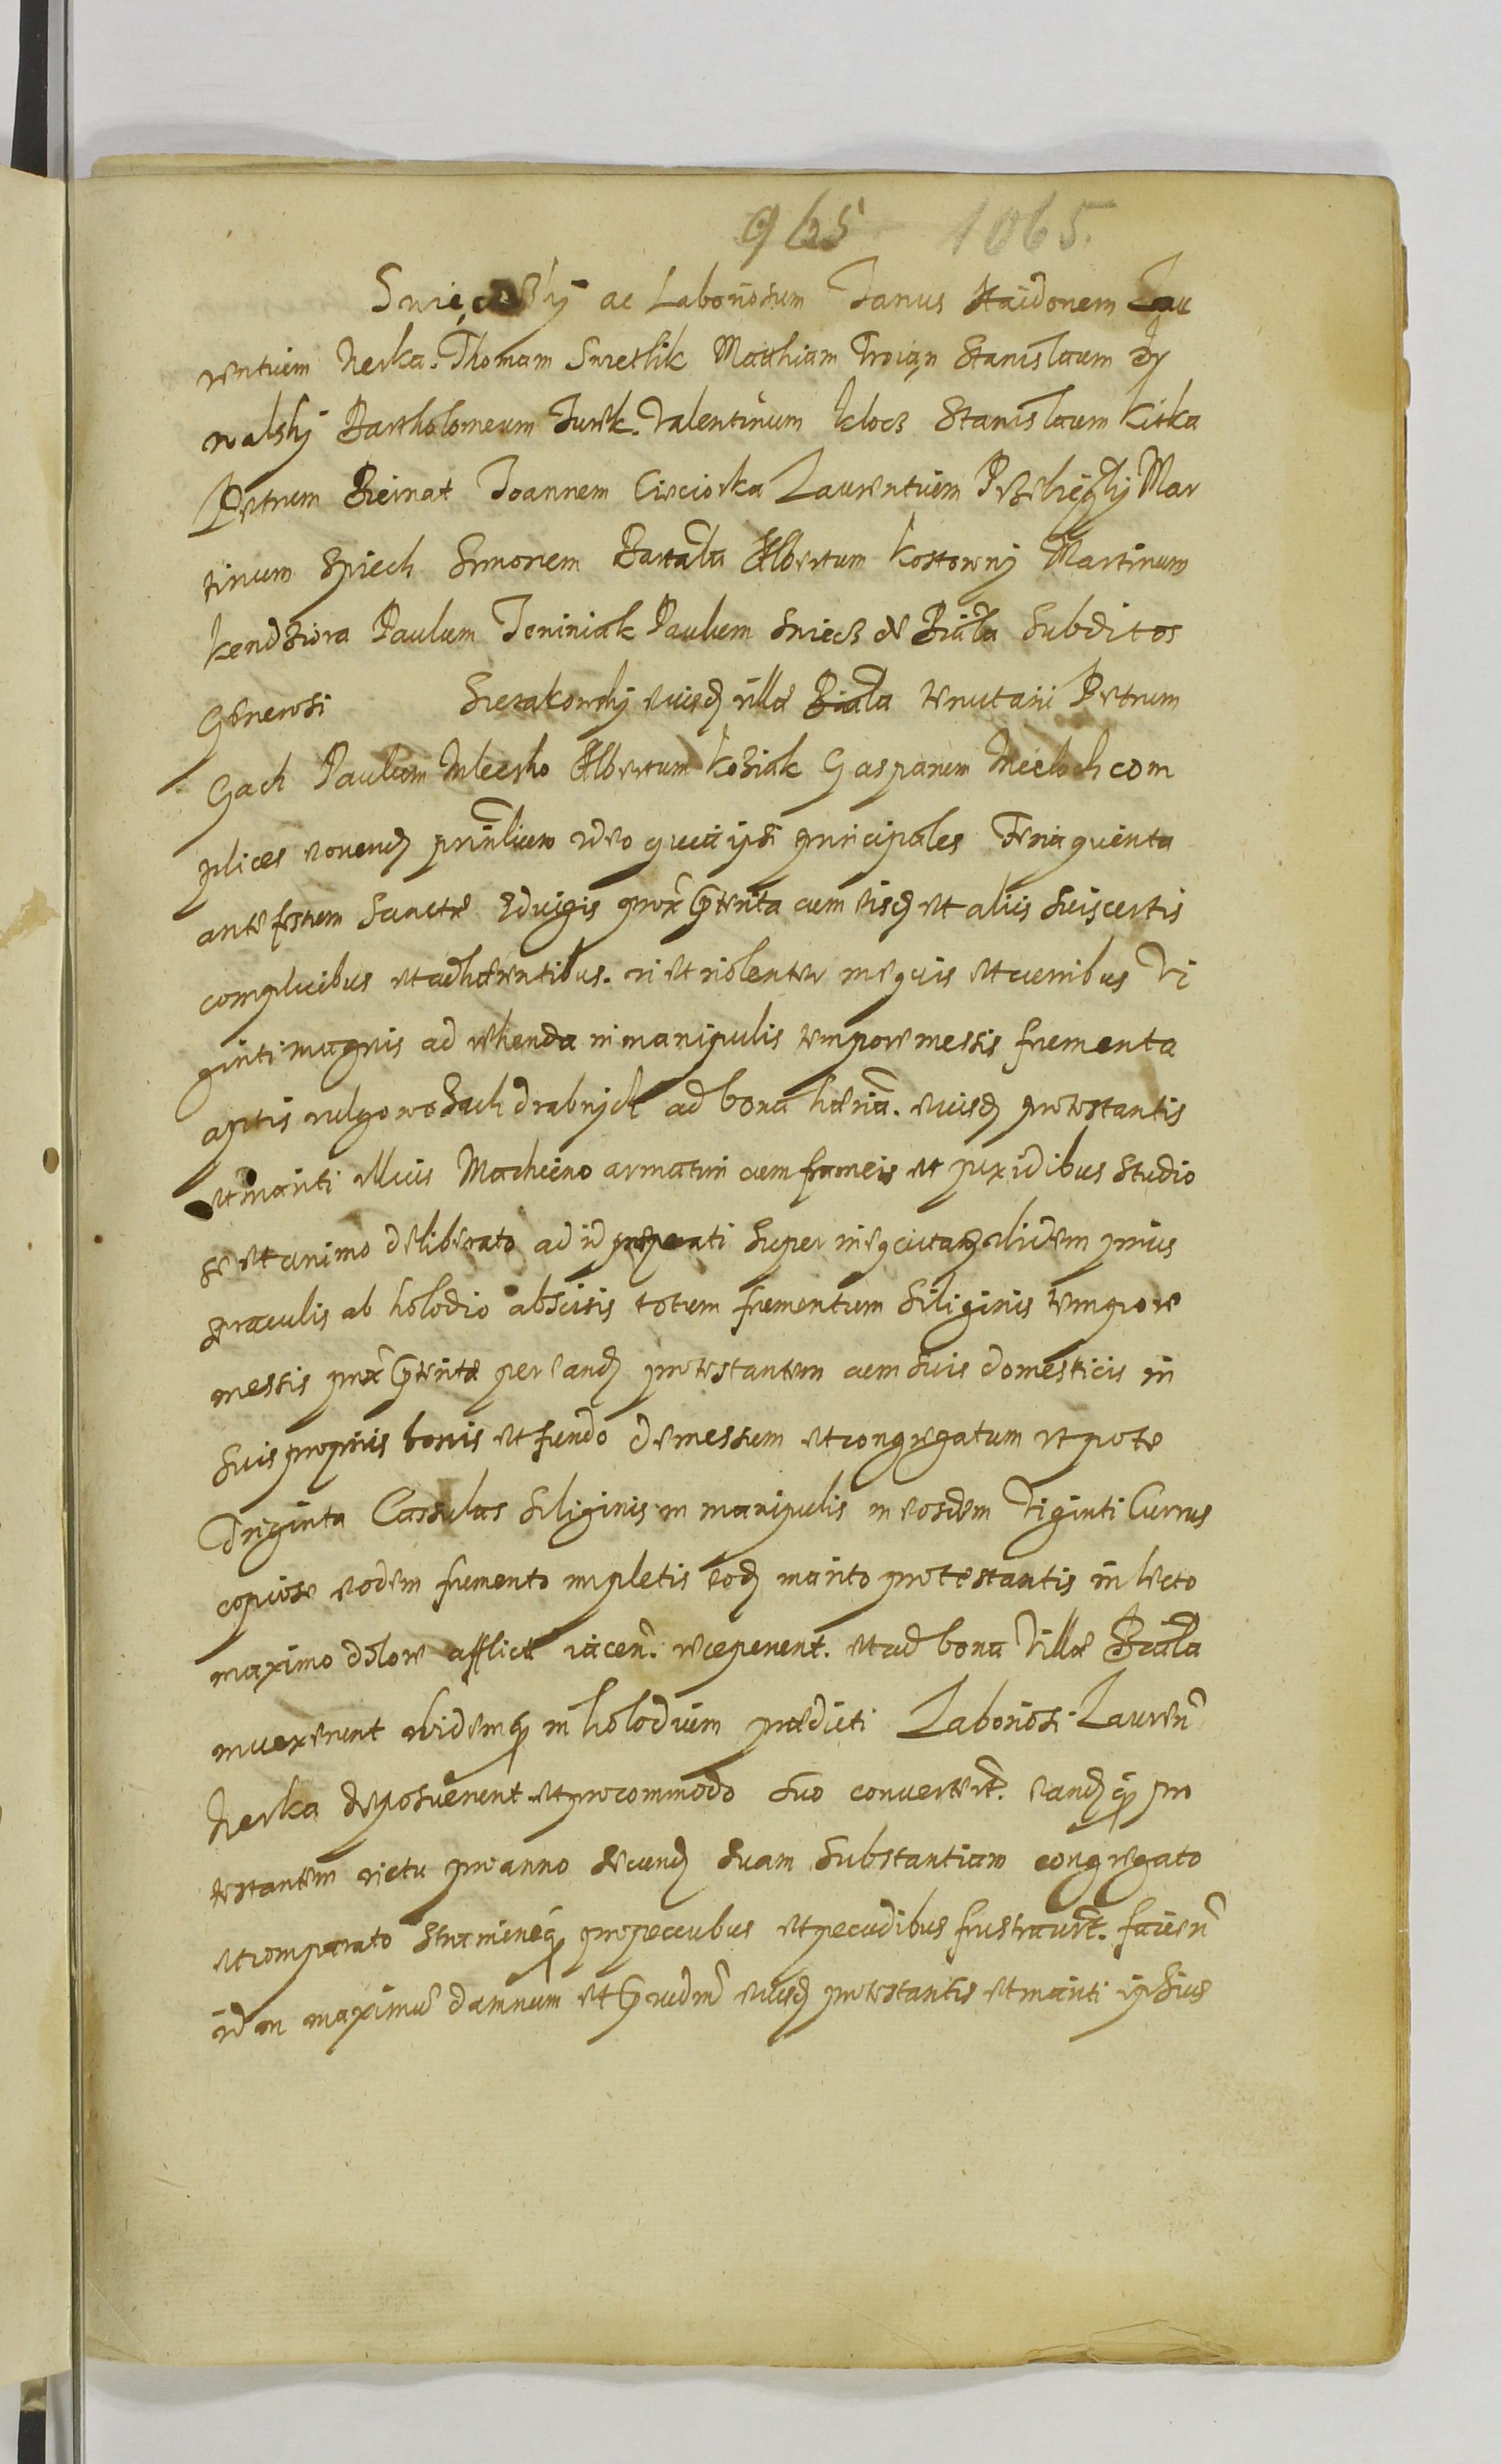 965 1065.
ac Laboriosum Janus Haidonem Lau
rentium Nerka. Thomam Swietlik Matthiam Troian Stanislaum Dy
walskÿ Bartholomeum Turek. Valentinum Klocz Stanislaum Kitka
Petrum Biernat Joannem Cieciorka Laurentium Mar
tinum Spiech Simonem Bartala Albertum Kostownÿ Martinum
Kendziora Paulum Joniniak Paulum Swiecz de Biała Subditos
Generosi Sierakowskÿ eiusd villæ Biała tenutarii Petrum
Gach Paulum Mleczko Albertum Koziak Gasparum Mieloch com
plices eorund prinlium ideo quia ipsi principales Feria quinta
ante festum Sanctæ Eduigis prox præterita cum eisd et aliis suis certis
complicibus et adhærentibus. vi et violenter in equis et curribus Vi
ginti magnis ad vehenda in manipulis tempore messis frumenta
aptis vulgo wozach drabnÿch ad bona hæria. eiusd protestantis
et mariti illius Machcino armatim cum frameis et pixidibus studio
se et animo deliberato ad id præparati super ibidem prius
seraculis ab holodio abscisis totum frumentum siliginis tempore
messis prox præteritæ per eand protestantem cum suis domesticis in
suis propriis bonis et fundo demessum et congregatum utpote
Triginta Cassulas siliginis in manipulis in eosdem Viginti Currus
copiose eodem frumento impletis eod marito protestantis in lecto
maximo dolore afflict iacen. receperunt. et ad bona Villæ Biała
inuexerunt ibidemq in holodium prædicti Laboriosi Lauren
Nerka deposuerunt et pro commodo suo convertert. eandq pro
testantem victu pro anno secund suam substantiam congregato
et comparato stramineq pro pecoribus et pecudibus frustraurt. facien
id in maximu damnum et præiudm eiusd protestantis et mariti ipsius